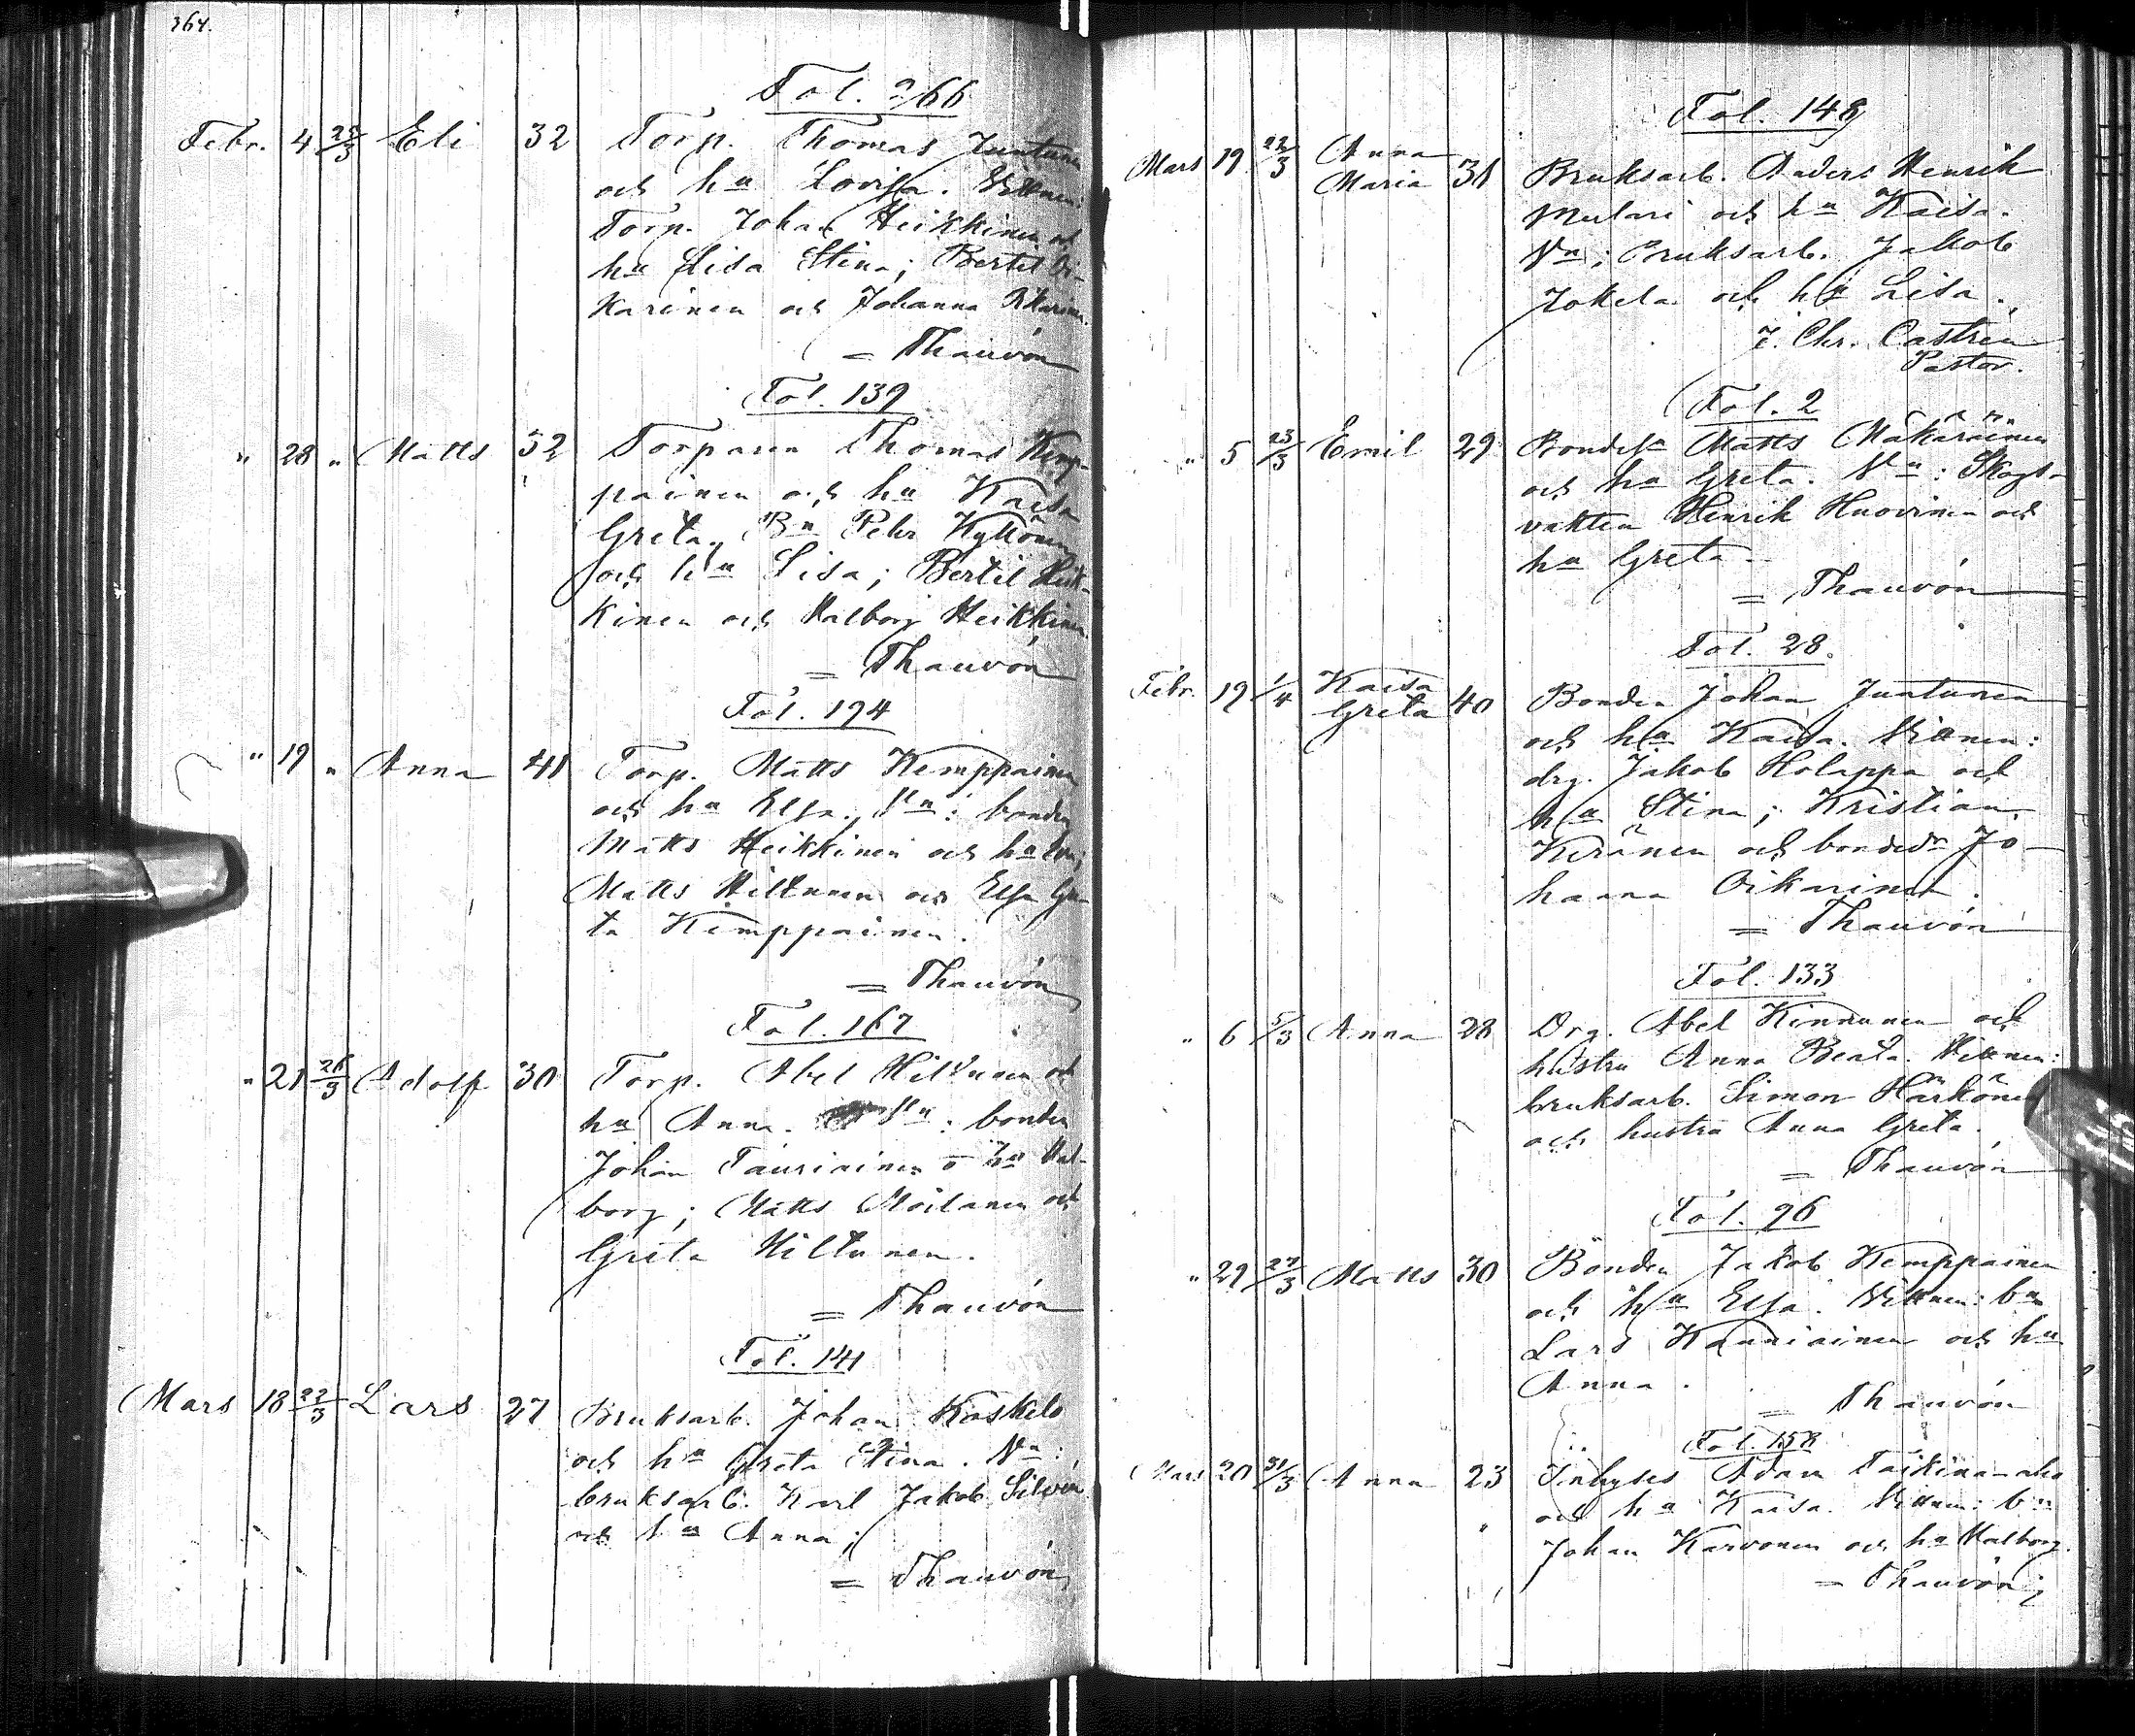 364.
Fol. 266
Febr. 4 22/3 Eli 32 Torp. Thomas Juntunen
och hu Lovisa. Vittnen:
Torp. Johan Heikkinen och
hu Lisa Stina; Bertil Oi-
karinen och Johanna Oikarinen.
= Thauvón
Fol. 139
" 28 " Matts 32 Torparen Thomas Kemp-
painen och hu Kaisa
Greta. Bn Pehr Kyllönen
och hu Lisa; Bertil Heik-
kinen och Walborg Heikkinen.
= Thauvón
Fol. 194
" 19 " Anna 41 Torp. Matts Kemppainen
och hu Elsa. Vn: bonden
Matts Heikkinen och hu
Matts Hiltunen och Elsa Gre-
ta Kemppainen.
= Thauvón
Fol. 167
" 21 26/3 Adolf 30 Torp. Abel Hiltunen och
hu Anna. Vn: bonden
Johan Tauriainen o hu Wal-
borg; Matts Moilanen och
Greta Hiltunen.
= Thauvón
Fol. 141
Mars 18 22/3 Lars 27 Bruksarb. Johan Koskelo
och hu Greta Stina. Vn:
bruksarb. Karl Jakob Silvén
och hu Anna;
= Thauvón
Fol. 148
Mars 19 22/3 Anna
Maria 31 Bruksarb. Anders Henrik
Mulari och hu Kaisa.
Vn; Bruksarb. Jakob
Jokela och hu Lisa.
J. Chr. Castrén
Pastor.
Fol. 2
" 5 23/3 Emil 29 Bondesn Matts Mäkäräinen
och hu Greta. Vn: Skogs-
vakten Henrik Huovinen och
hu Greta.
= Thauvón
Fol. 28.
Febr. 19 1/4 Kaisa
Greta 40 Bonden Johan Juntunen
och hu Kaisa. Vittnen:
drg. Jakob Holappa och
hu Stina; Kristian
Keränen och bonded. Jo-
hanna Oikarinen.
= Thauvón
Fol. 133
" 6 5/3 Anna 28 Drg. Abel Kinnunen och
hustru Anna Beata. Vittnen:
bruksarb. Simon Härkönen
och hustru Anna Greta.
= Thauvón
Fol. 96
" 29 27/3 Matts 30 Bonden Jakob Kemppainen
och hu Elsa. Vittnen: bn
Lars Kauniainen och hu
Anna.
= Thauvón
Fol. 158
Mars 20 31/3 Anna 23 Inhyses Adam Taikina-aho
och hu Kaisa. Vittnen: bn
Johan Karvonen och hu Walborg.
= Thauvón